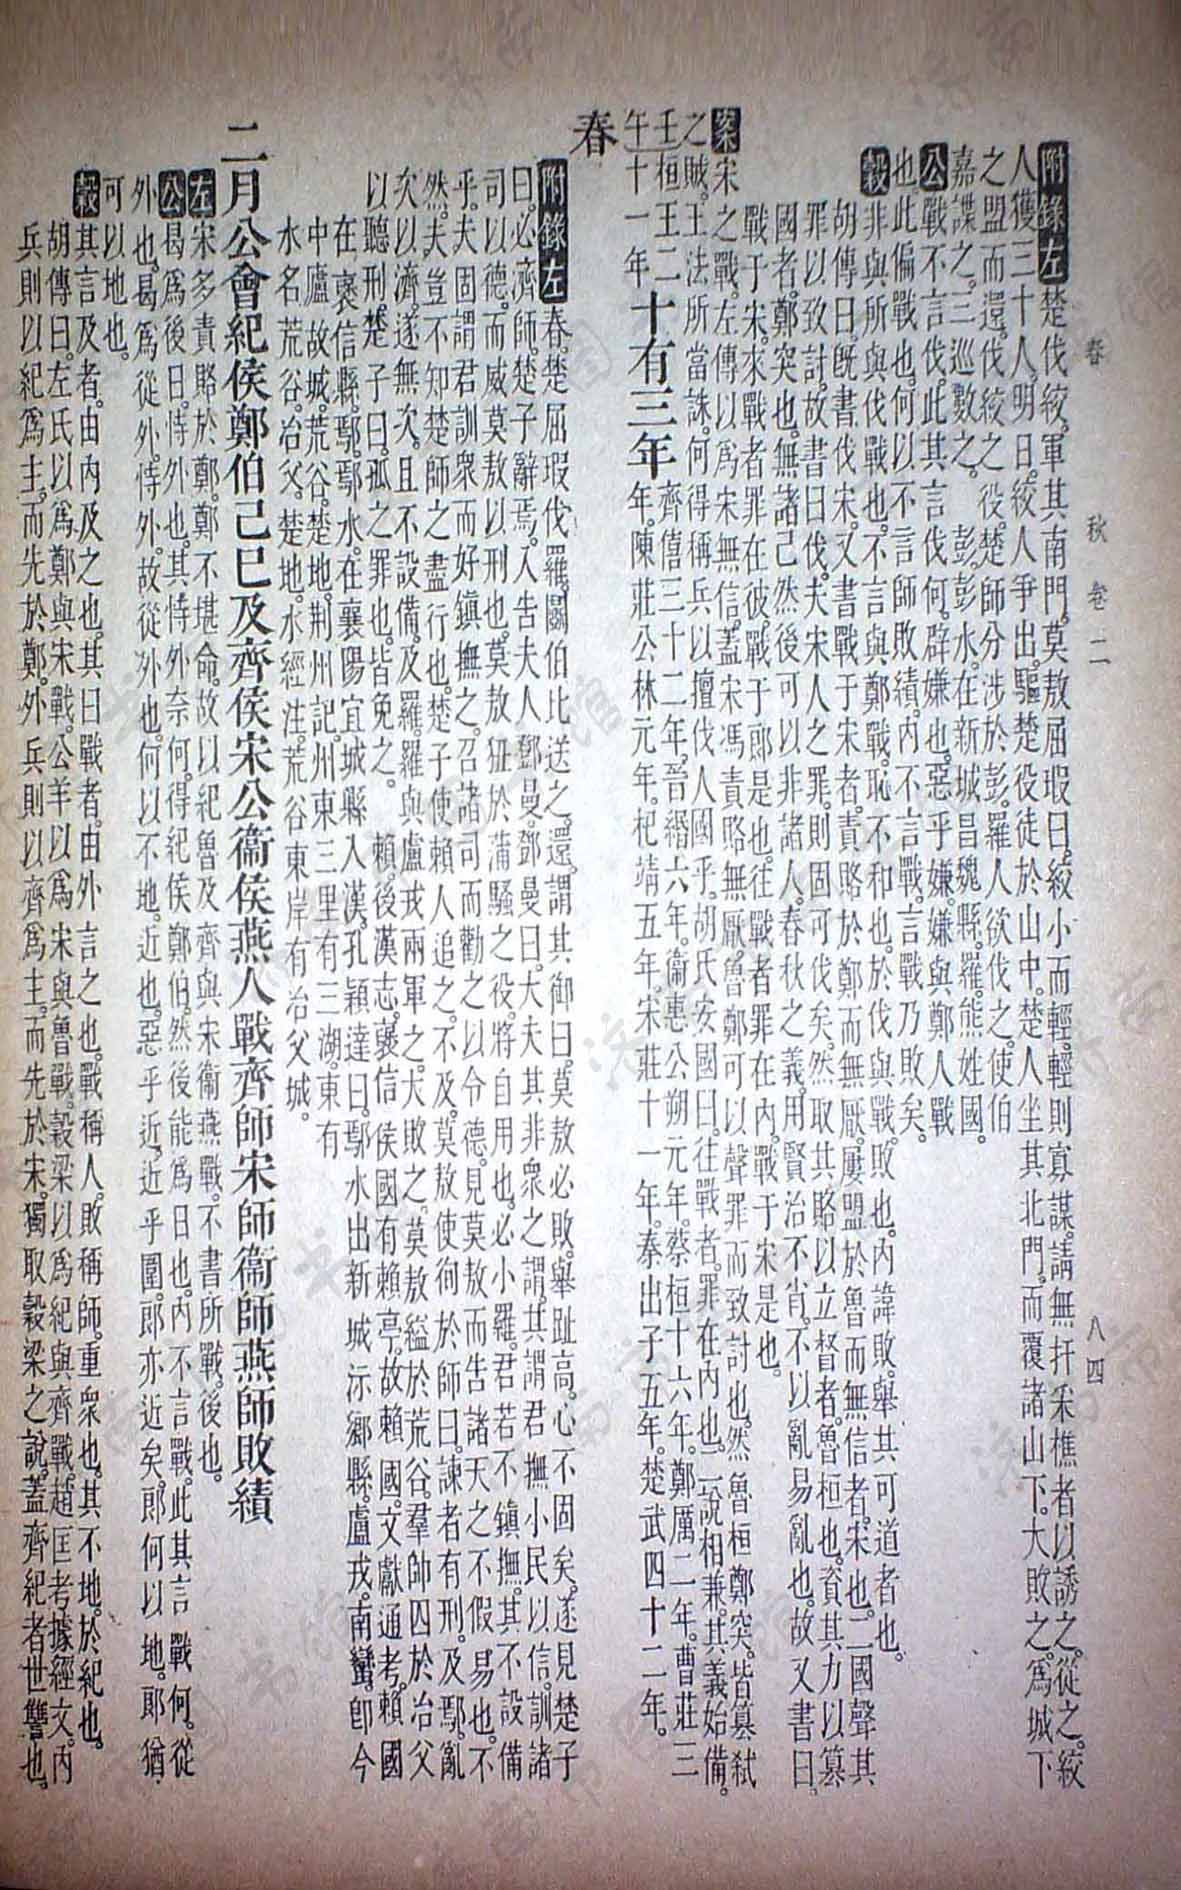 春 秋 卷二 八四
附錄左楚伐絞軍其南門莫敖屈瑕曰絞小而輕輕則寡謀請無扞采樵者以誘之從之絞
人獲三十人明日絞人爭出驅楚役徒於山中楚人坐其北門而覆諸山下大敗之爲城下
之盟而還伐絞之役楚師分涉於彭羅人欲伐之使伯
嘉諜之三巡數之 彭彭水在新城昌魏縣羅熊姓國
公戰不言伐此其言伐何辟嫌也惡乎嫌嫌與鄭人戰
也此偏戰也何以不言師敗績內不言戰言戰乃敗矣
穀非與所與伐戰也不言與鄭戰恥不和也於伐與戰敗也內諱敗舉其可道者也
胡傳曰既書伐宋又書戰于宋者責賂於鄭而無厭屢盟於魯而無信者宋也二國聲其
罪以致討故書曰伐夫宋人之罪則固可伐矣然取其賂以立督者魯桓也資其力以簒
國者鄭突也無諸己然後可以非諸人春秋之義用賢治不肖不以亂易亂也故又書曰
戰于宋來戰者罪在彼戰于郎是也往戰者罪在內戰于宋是也
案宋之戰左傳以爲宋無信蓋宋馮責賂無厭魯鄭可以聲罪而致討也然魯桓鄭突皆簒弒
之賊王法所當誅何得稱兵以擅伐人國乎胡氏安國曰往戰者罪在內也二說相兼其義始備
壬午桓王二十一年十有三年齊僖三十二年晉緡六年衞惠公朔元年蔡桓十六年鄭厲二年曹莊三
年陳莊公林元年杞靖五年宋莊十一年秦出子五年楚武四十二年
春
附錄左春楚屈瑕伐羅鬭伯比送之還謂其御曰莫敖必敗舉趾高心不固矣遂見楚子
曰必濟師楚子辭焉入告夫人鄧曼鄧曼曰大夫其非衆之謂其謂君撫小民以信訓諸
司以德而威莫敖以刑也莫敖狃於蒲騷之役將自用也必小羅君若不鎮撫其不設備
乎夫固謂君訓衆而好鎮撫之召諸司而勸之以令德見莫敖而告諸天之不假易也不
然夫豈不知楚師之盡行也楚子使賴人追之不及莫敖使徇於師曰諫者有刑及鄢亂
次以濟遂無次且不設備及羅羅與盧戎兩軍之大敗之莫敖縊於荒谷羣帥囚於冶父
以聽刑楚子曰孤之罪也皆免之 賴後漢志褒信侯國有賴亭故賴國文獻通考賴國
在褒信縣鄢鄢水在襄陽宜城縣入漢孔穎達曰鄢水出新城沶鄉縣盧戎南蠻即今
中廬故城荒谷楚地荊州記州東三里有三湖東有
水名荒谷冶父楚地水經注荒谷東岸有冶父城
二月公會紀侯鄭伯己巳及齊侯宋公衞侯燕人戰齊師宋師衞師燕師敗績
左宋多責賂於鄭鄭不堪命故以紀魯及齊與宋衞燕戰不書所戰後也
公曷爲後日恃外也其恃外奈何得紀侯鄭伯然後能爲日也內不言戰此其言戰何從
外也曷爲從外恃外故從外也何以不地近也惡乎近近乎圍郎亦近矣郎何以地郎猶
可以地也
穀其言及者由內及之也其曰戰者由外言之也戰稱人敗稱師重衆也其不地於紀也
胡傳曰左氏以爲鄭與宋戰公羊以爲宋與魯戰穀梁以爲紀與齊戰趙匡考據經文內
兵則以紀爲主而先於鄭外兵則以齊爲主而先於宋獨取穀梁之說蓋齊紀者世讐也